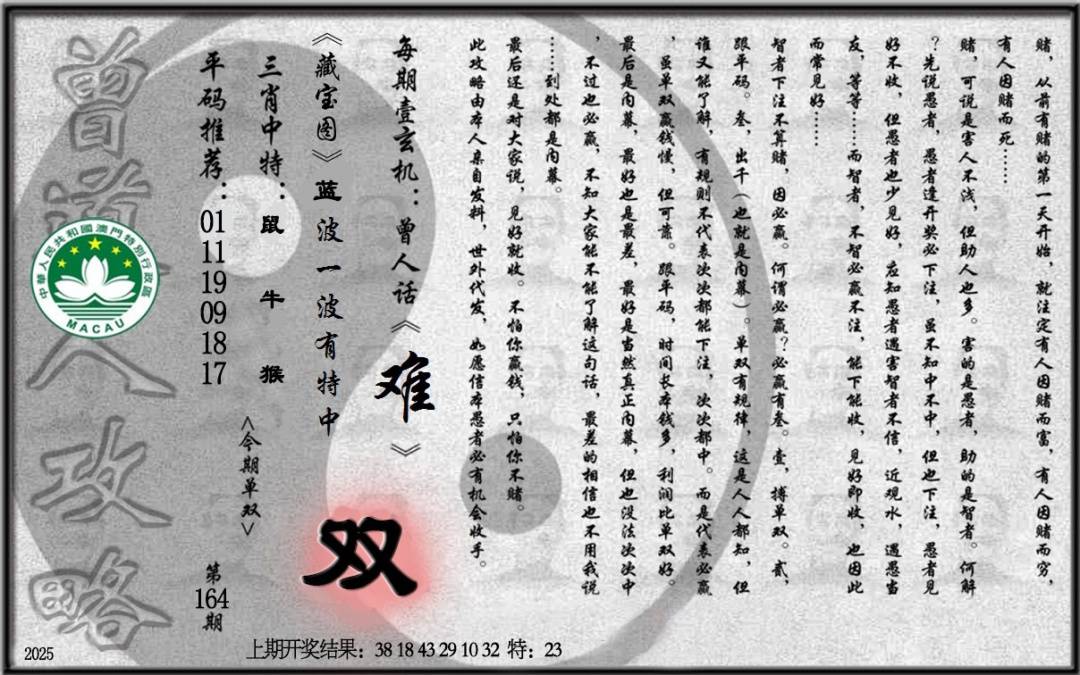 赌，从前有赌的第一天开始，就注定有人因赌而富，有人因赌而穷，
有人因赌而死……
赌，可说是害人不浅，但助人也多。害的是愚者，助的是智者。何解
？先说愚者，愚者逢开奖必下注，虽不知中不中，但也下注，愚者见
好不收，但愚者也少见好，应知愚者遇害智者不信，近观水，遇愚当
友，等等……而智者，不智必赢不注，能下能收，见好即收，也因此
而常见好……
智者下注不算赌，因必赢。何谓必赢？必赢有叁。壹，搏单双。贰，
跟平码。叁，出千（也就是内幕）。单双有规律，这是人人都知，但
谁又能了解，有规则不代表次次都能下注，次次都中。而是代表必赢
，虽单双赢钱慢，但可靠。跟平码，时间长本钱多，利润比单双好。
最后是内幕，最好也是最差，最好是当然真正内幕，但也没法次次中
，不过也必赢，不知大家能不能了解这句话，最差的相信也不用我说
……到处都是内幕。
最后还是对大家说，见好就收。不怕你赢钱，只怕你不赌。
此攻略由本人亲自发料，世外代发，如愿信本愚者必有机会收手。
每期壹玄机：曾人话《难》
《藏宝图》蓝波一波有特中
双
三肖中特：鼠 牛 猴
<今期单双>
平码推荐：01 11 19 09 18 17
第164期
曾道人攻略
中華人民共和國澳門特別行政區
MACAU
2025
上期开奖结果：38 18 43 29 10 32 特：23